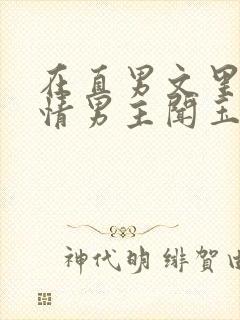 在直男文里
情男主闻
神代明 绯贺